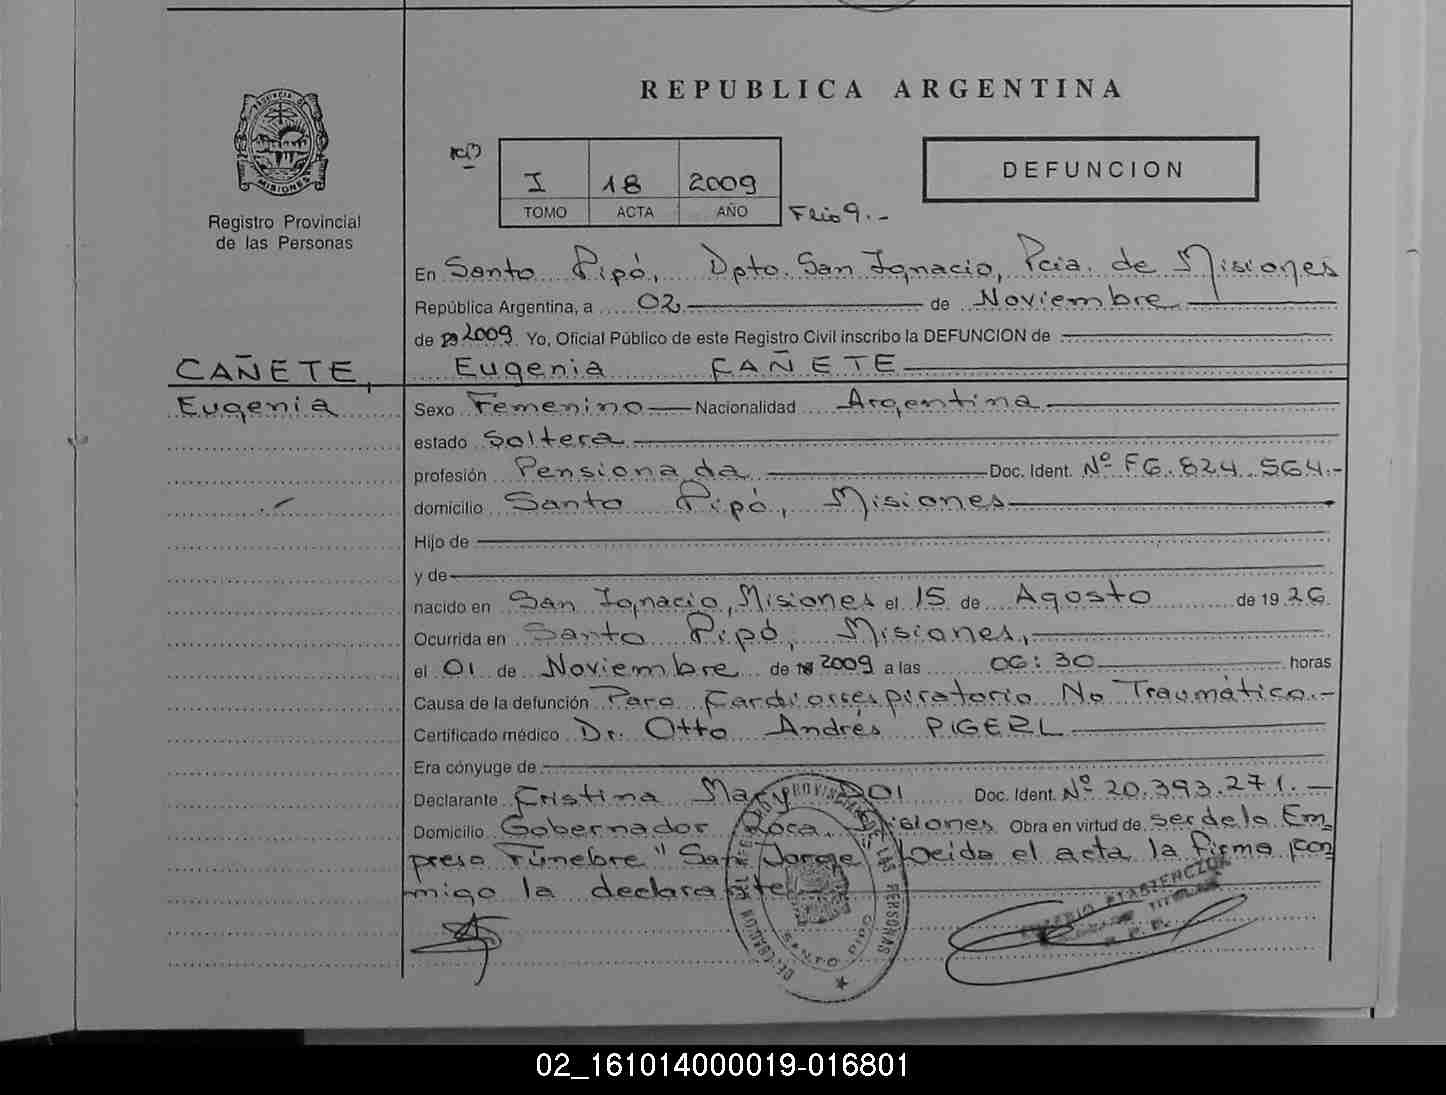 REPUBLICA ARGENTINA
PROVINCIA DE
MISIONES
Registro Provincial
de las Personas
I 18 2009
TOMO ACTA AÑO
Folio 9.-
DEFUNCION
En Santo Pipó, Dpto. San Ignacio, Pcia. de Misiones
República Argentina, a 02 de Noviembre
de 2009 Yo, Oficial Público de este Registro Civil inscribo la DEFUNCION de
CAÑETE, Eugenia CAÑETE
Eugenia Sexo Femenino Nacionalidad Argentina
estado Soltera
profesión Pensionada Doc. Ident. Nº F6.824.564.-
domicilio Santo Pipó, Misiones
Hijo de
y de
nacido en San Ignacio, Misiones el 15 de Agosto de 1926
Ocurrida en Santo Pipó, Misiones,
el 01 de Noviembre de 2009 a las 06:30 horas
Causa de la defunción Paro Cardiorrespiratorio No Traumático.-
Certificado médico Dr. Otto Andrés PIGERL
Era cónyuge de
Declarante Cristina Mary DOI Doc. Ident. Nº 20.393.271.-
Domicilio Gobernador Roca, Misiones Obra en virtud de ser de la Em
presa Fúnebre "San Jorge" Leida el acta la firma con
migo la declarante
PROVINCIAL DE LAS PERSONAS
DELEGACION
SANTO PIPO
02_161014000019-016801